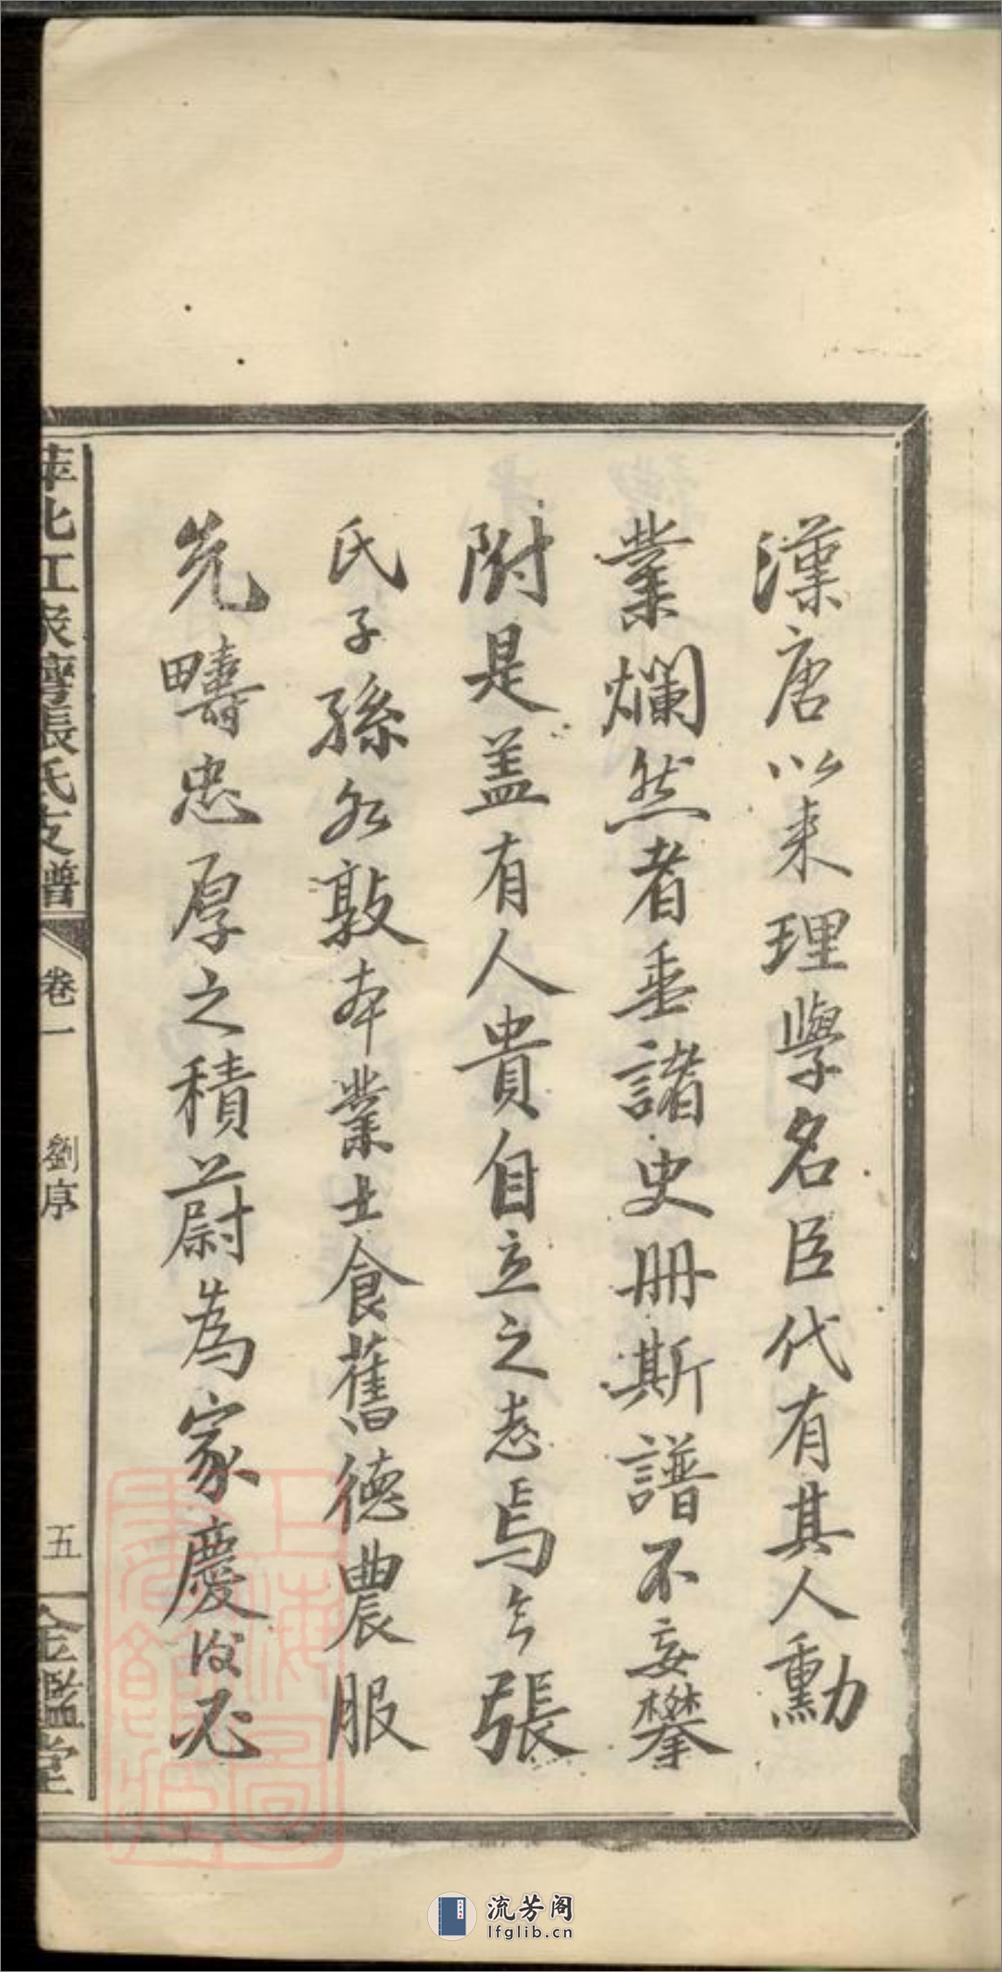 漢唐以来理學名臣代有其人勳
業爛然者垂諸史冊斯譜不妄攀
附是盖有人貴自立之志焉今張
氏子孫各敦本業士食舊德農服
先疇忠厚之積蔚為家慶後必
萍北江泉灣張氏支譜
卷一
劉序
五
金鑑堂
上海圖書館藏
流芳阁
lfglib.cn